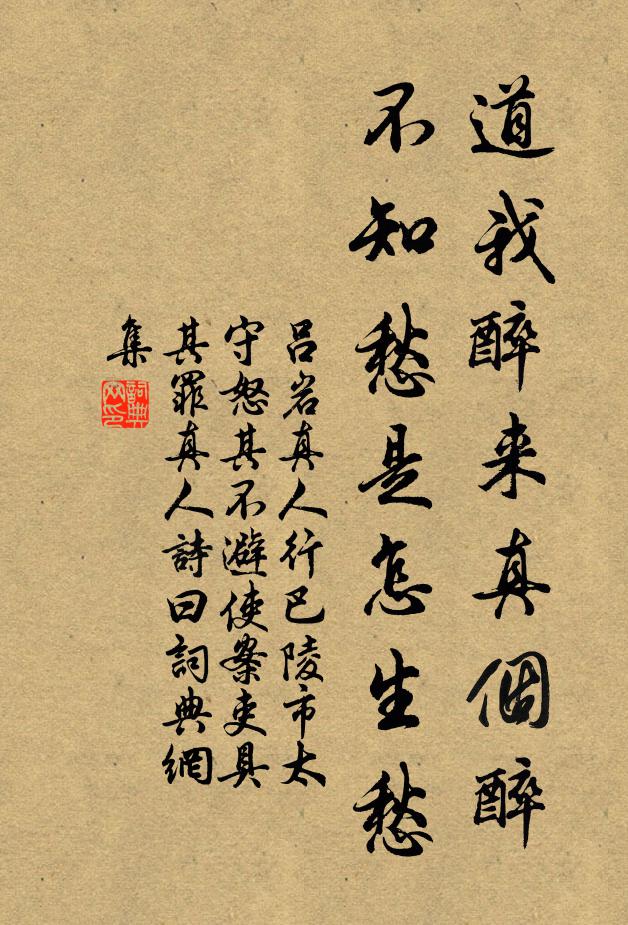 道我醉来真個醉
不知愁是怎生愁
呂岩真人行巴陵市太
守怒其不避使案吏具
其罪真人詩曰詞典網
集
詞典
网印